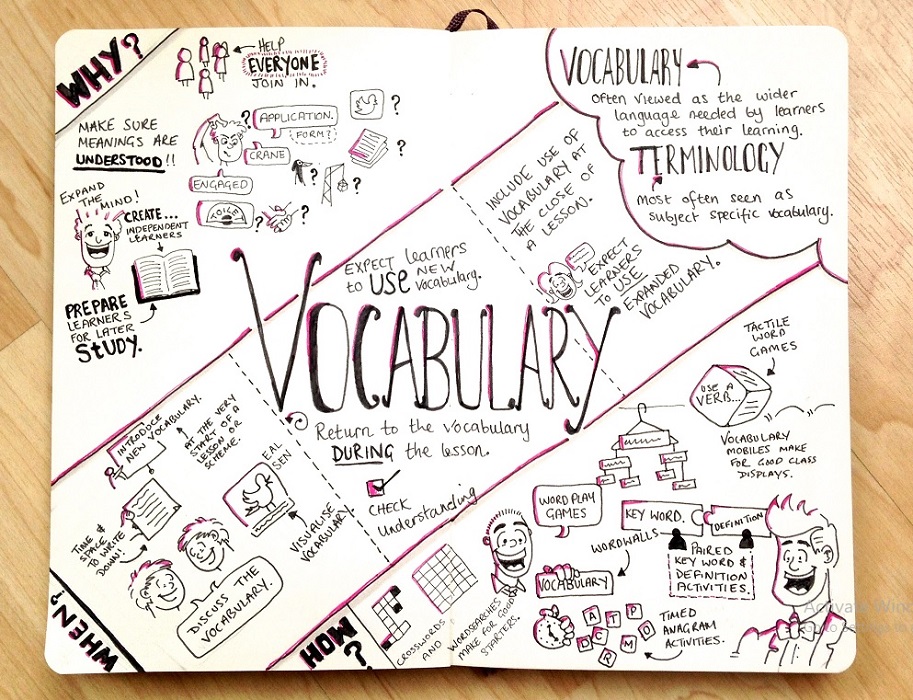 WHY?
HELP
EVERYONE
JOIN IN.
MAKE SURE
MEANINGS ARE
UNDERSTOOD!!
APPLICATION.
FORM?
CRANE
ENGAGED
TOILET
?
?
?
?
?
?
?
?
EXPAND
THE MIND!
CREATE...
INDEPENDENT
LEARNERS
PREPARE
LEARNERS
FOR LATER
STUDY.
VOCABULARY
Often viewed as the wider
language needed by learners
to access their learning.
TERMINOLOGY
Most often seen as
subject specific vocabulary.
INCLUDE USE OF
VOCABULARY AT
THE CLOSE OF
A LESSON.
EXPECT
LEARNERS
TO USE
EXPANDED
VOCABULARY.
EXPECT learners
to USE NEW
Vocabulary.
VOCABULARY
Return to the vocabulary
DURING the lesson.
CHECK
Understanding
INTRODUCE
NEW VOCABULARY.
AT THE VERY
START OF A
LESSON OR A
SCHEME.
EAL
SEN
VISUALISE
VOCABULARY
TIME &
SPACE
TO WRITE
DOWN!
DISCUSS THE
VOCABULARY.
WHEN?
HOW?
CROSSWORDS
AND
WORDSEARCHES
MAKE FOR GOOD
STARTERS.
TACTILE
WORD
GAMES
USE A
VERB...
VOCABULARY
MOBILES MAKE
FOR GOOD CLASS
DISPLAYS.
WORD PLAY
GAMES
KEY WORD.
DEFINITION
WORDWALLS
VOCABULARY
PAIRED
KEY WORD &
DEFINITION
ACTIVITIES.
A T P
D C R M O
TIMED
ANAGRAM
ACTIVITIES.